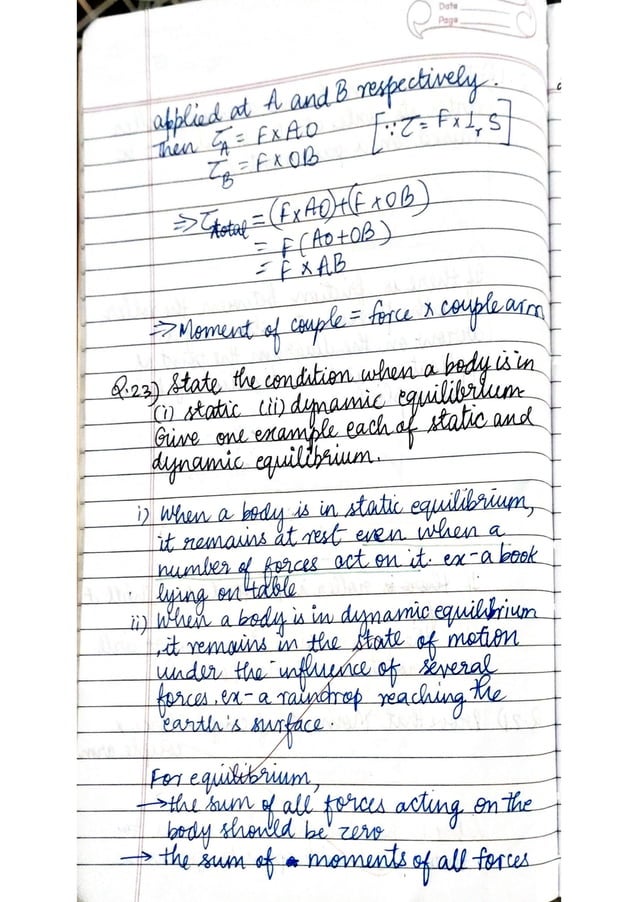 Date
Page
applied at A and B respectively.
Then τ_A = F×AO [∵τ = F×⊥r S]
τ_B = F×OB
⇒τ_total = (F×AO)+(F×OB)
= F(AO+OB)
= F×AB
⇒Moment of couple = force × couple arm
Q.23) State the condition when a body is in
(i) static (ii) dynamic equilibrium.
Give one example each of static and
dynamic equilibrium.
i) When a body is in static equilibrium,
it remains at rest even when a
number of forces act on it. ex-a book
lying on table
ii) When a body is in dynamic equilibrium
,it remains in the state of motion
under the influence of several
forces. ex-a raindrop reaching the
earth's surface.
For equilibrium,
→the sum of all forces acting on the
body should be zero
→ the sum of moments of all forces